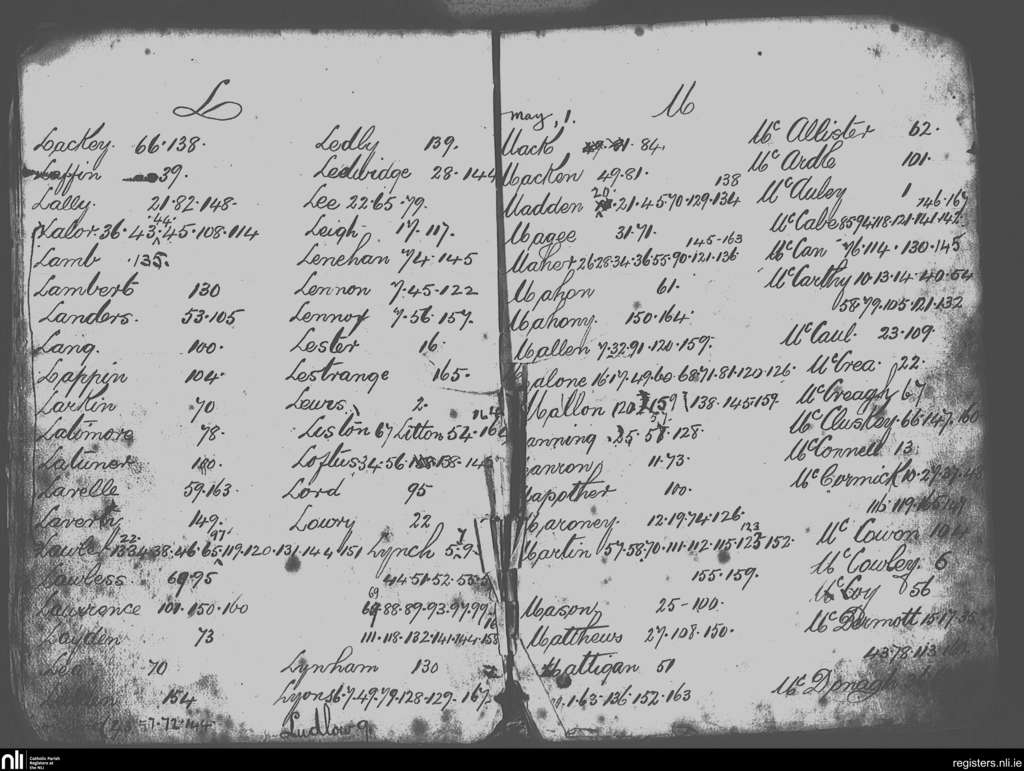 L
Lackey. 66.138.
Laffin 39.
Lally. 21.82.148.
44
Lalor. 36.43.45.108.114
Lamb 135.
Lambert 130
Landers. 53.105
Lang. 100.
Lappin 104.
Larkin 70
Latimore 78.
Latimer 100.
Lavelle 59.163.
Laverty 149.
22 97
Lawlers 38.46.65.119.120.131.144.151
Lawless 69.95
Lawrence 101.150.160
Layden 73
70
154
57.72.144.
Ledby 139.
Ledbridge 28.144
Lee 22.65.79.
Leigh. 17.117.
Lenehan 74.145
Lennon 7.45.122
Lennox 7.56.157.
Lester 16.
Lestrange 165.
Lewis 2.
164
Liston 67 Litton 54.160
Loftus 34.56.158.145
Lord 95
Lowry 22
Lynch 5.9.
44.51.52.53.5
69
88.89.93.97.99
16
111.118.132.141.144.158
Lynham 130
Lyons 67.49.79.128.129.167
Ludlow 9.
M
May, 1.
Mack 84
Macken 49.81.
138
20
Madden 21.45.70.129.134
Magee 31.71.
145-163
Maher 26.28.34.36.55.90.121.136
Mahon 61.
Mahony. 150.164.
Mallen 7.32.91.120.159.
Malone 16.17.49.60.68.71.81.120.126.
Mallon 120 159 138.145.159
57
anning 128.
anron 11.73.
apother 100.
Maroney. 12.19.74.126.
123
Martin 57.58.70.111.112.115.123.152.
155.159.
Mason 25-100.
Matthews 27.108.150.
Mattigan 51
1.63.136.152.163
Mc Allister 62.
Mc Ardle 101.
Mc Auley 1
146.167
Mc Cabe 85.94.118.121.141.142
Mc Can 76.114.130.145
Mc Carthy 10.13.14.40.54
58.79.105.121.132
Mc Caul. 23.109.
Mc Crea. 22.
Mc Creagh 67
Mc Cluskey. 66.147.160
Mc Connell 13
Mc Cormick 10.27.37.
115.119.165.
Mc Cowon
Mc Cowley 6
Mc Coy 56
Mc Dermott 15.17.35
43.78.113.
Mc Donagh
nli
Catholic Parish
Registers at
the NLI
registers.nli.ie